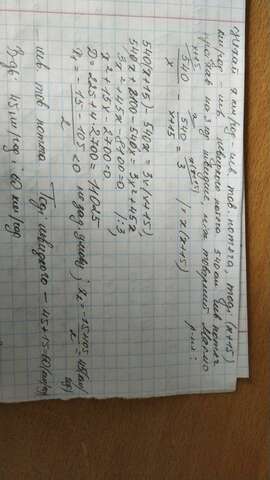 Нехай x км/год - шв. тов. потяга, тоді (x+15)
км/год - шв. швидкого потяга 540км шв потяг
проїхав на 3 год швидше, ніж товарний Маємо
р-ня:
x+15 x x(x+15)
540/x - 540/x+15 = 3 | · x(x+15)
540(x+15) - 540x = 3x(x+15)
540x + 8100 - 540x = 3x² + 45x
3x² + 45x - 8100 = 0 |:3
x² + 15x - 2700 = 0
D = 225 + 4·2700 = 11025
x₁ = -15 - 105/2 < 0 не зад. умову ; x₂ = -15+105/2 = 45(км/год)
- шв. тов потяга Тоді швидкого - 45+15=60(км/год)
Відп: 45 км/год; 60 км/год